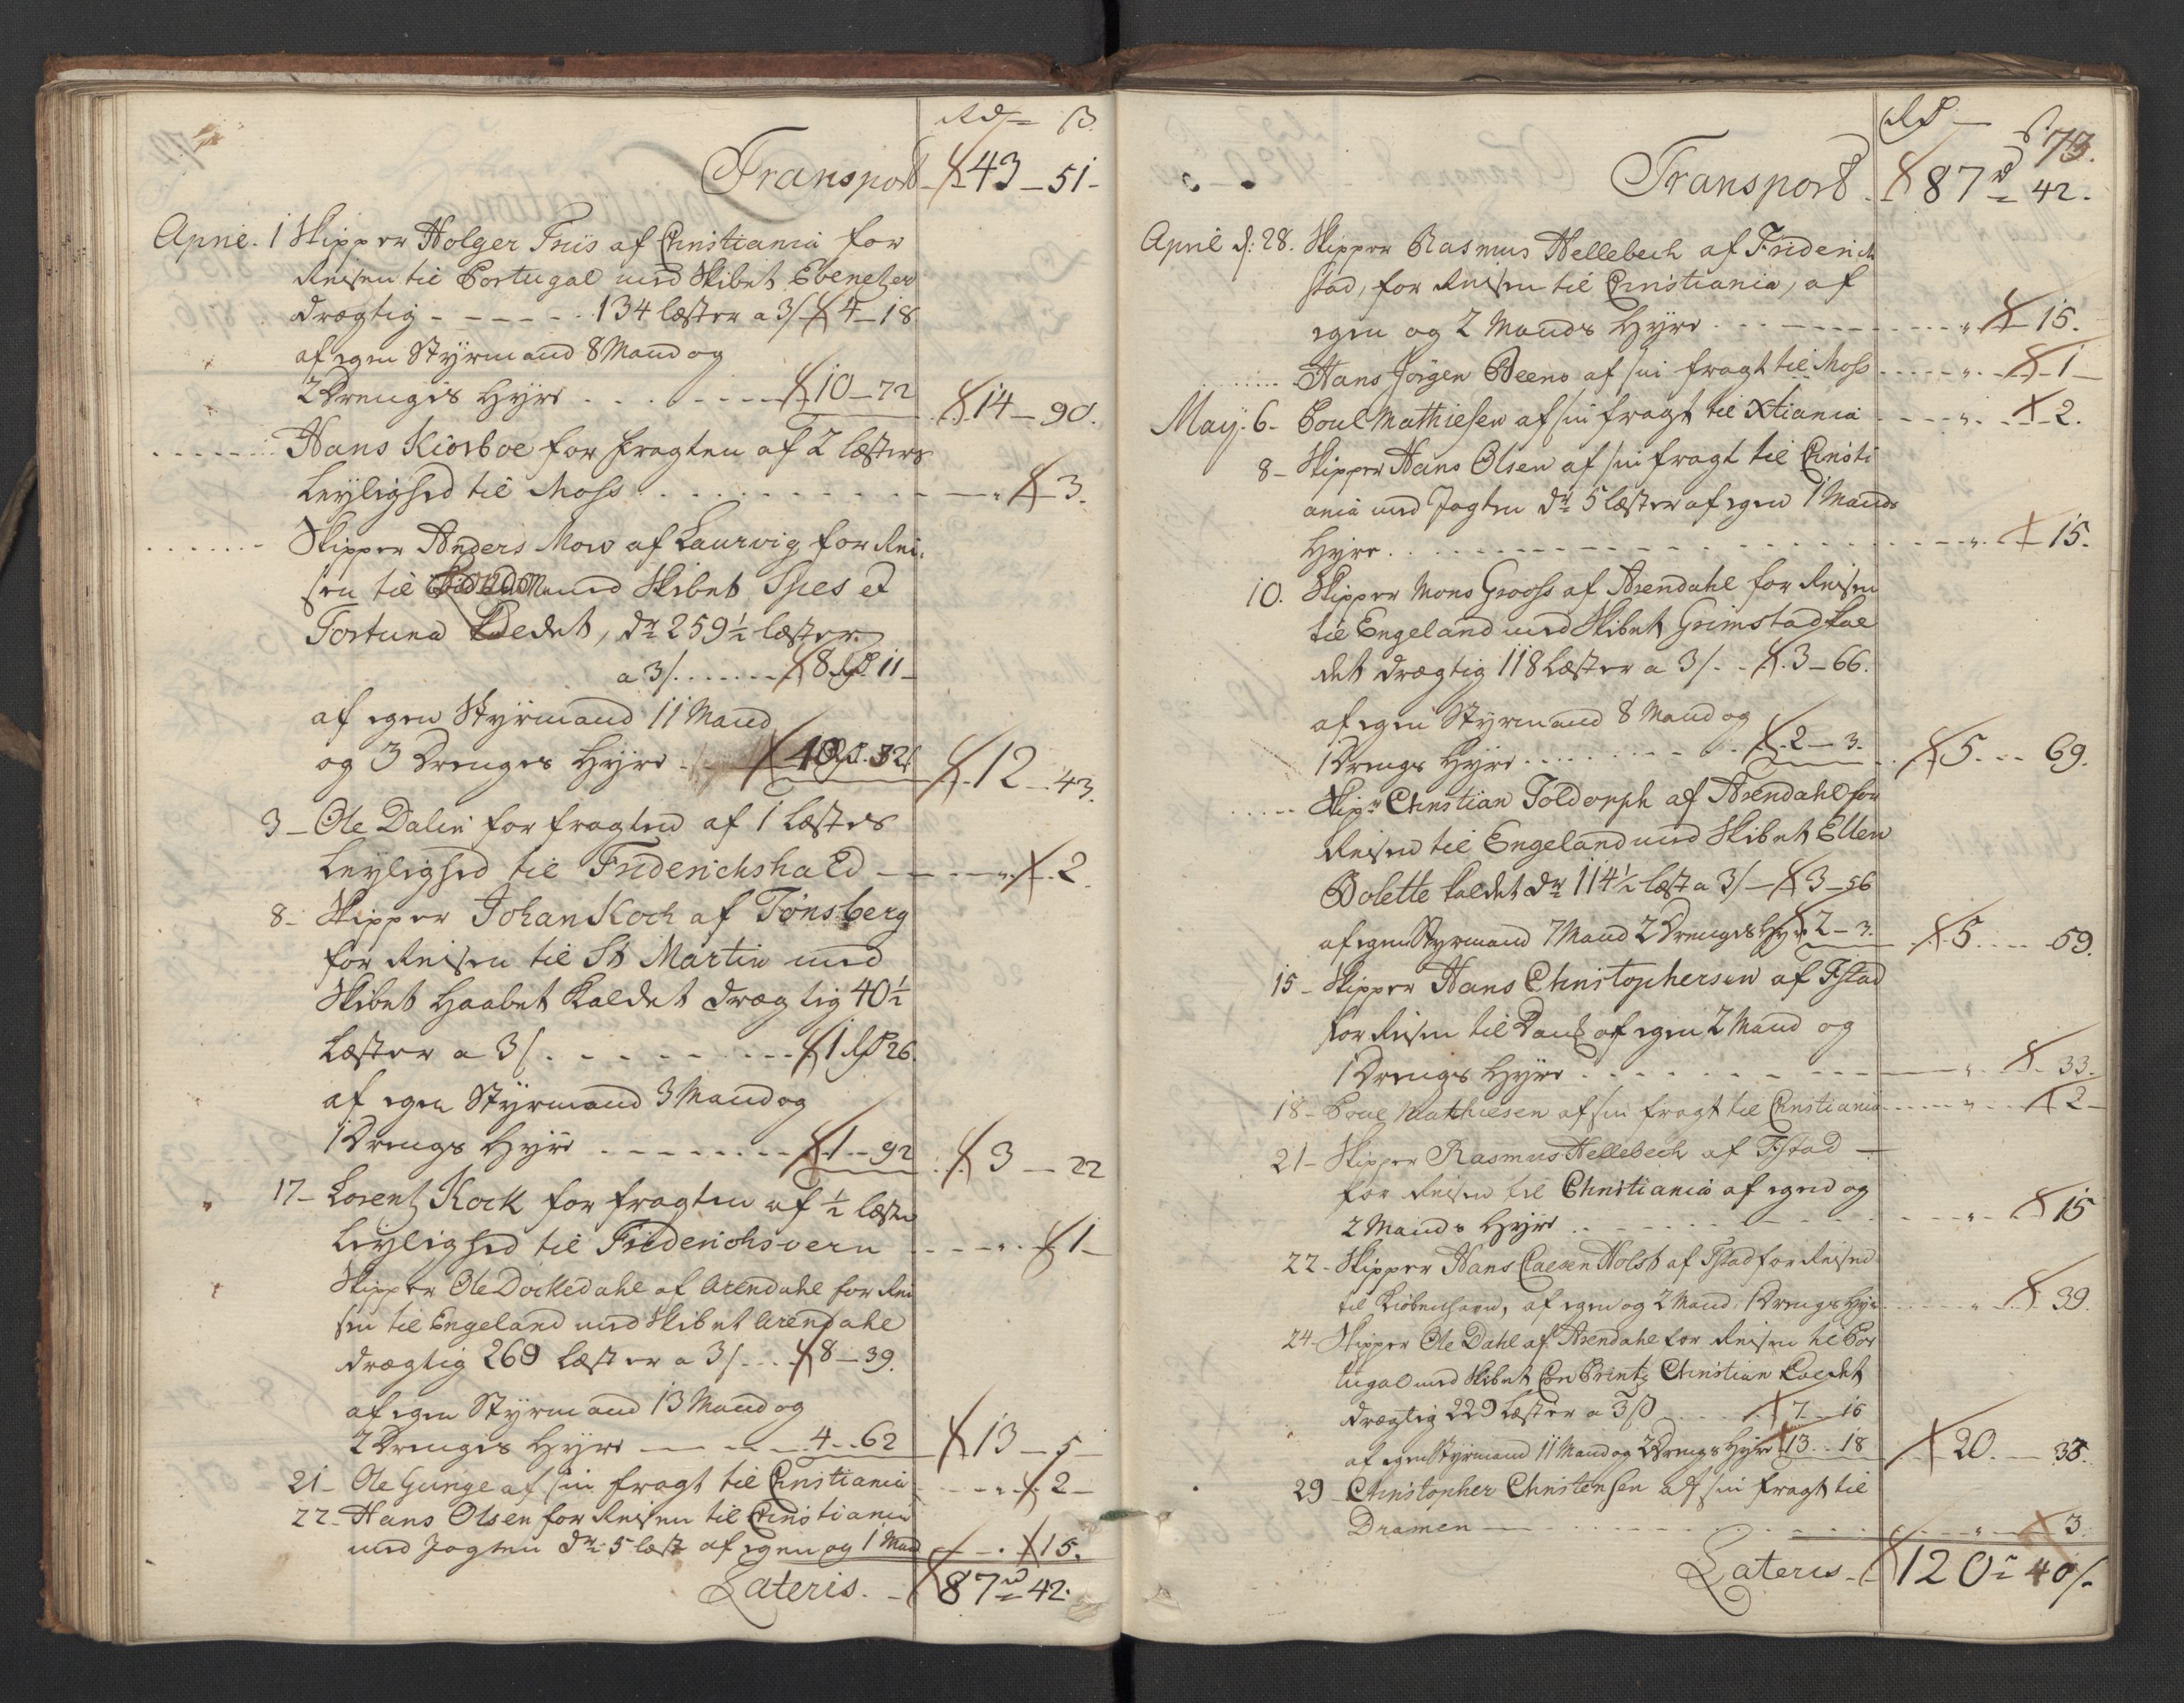 Rd ß
Transport 43 - 51 -
April. 1 Skipper Holger Friis af Christiania for
Reisen til Portugal med Skibet Ebenetzer
drægtig - - - - - 134 læster a 3/ 4 - 18
af egen Styrmand 8 Mand og
2 Drenges Hyre . . . 10 - 72 14 - 90.
Hans Kiørboe for fragten af 2 læsters
Leylighed til Moss . . . " 3.
Skipper Anders Mow af Laurvig for Rei-
sen til med Skibet Spes et
Fortuna Kaldet, dr 259½ læster
a 3/. . . . 8 Rd 11 -
af egen Styrmand 11 Mand
og 3 Drenges Hyre 12 - 43.
3 - Ole Dalin for fragten af 1 Læstes
Leylighed til Friderichshald - " 2.
8 - Skipper Johan Koch af Tønsberg
for Reisen til St Martin med
Skibet Haabet Kaldet drægtig 40½
Læster a 3/. . . . 1 Rd 26.
af egen Styrmand 3 Mand og
1 Drengs Hyre . . . 1 - 92 3 - 22
17 - Lorentz Kock for fragten af ½ læstes
Leylighed til Friderichsvern - - " 1 -
Skipper Ole Dockedahl af Arendahl for Rei
sen til Engeland med Skibet Arendahl
drægtig 269 Læster a 3/. . . 8 - 39.
af egen Styrmand 13 Mand og
2 Drenges Hyre - - - 4 - 62 13 - 5 -
21 - Ole Gunge af sin fragt til Christiania - " 2 -
22 - Hans Olsen for Reisen til Christiania
med Jagten dr 5 læst af egen og 1 Mand - . 15.
Lateris. - 87 rd 42.
Rd ß. 73.
Transport 87 rd 42.
April d: 28. Skipper Rasmus Hellebech af Friderich
stad, for Reisen til Christiania, af
egen og 2 Mands Hyre . . . " 15.
Hans Jörgen Beens af sin fragt til Moss . . . " 1 -
May. 6 - Poul Mathiesen af sin fragt til Xtiania - - " 2.
8 - Skipper Hans Olsen af sin fragt til Christi
ania med Jagten dr 5 læster af egen 1 Mands
Hyre . . . " 15.
10. Skipper Mons Grooss af Arendahl for Reisen
til Engeland med Skibet Grimstad Kal
det drægtig 118 Læster a 3/. - 3 - 66.
af egen Styrmand 8 Mand og
1 Drengs Hyre . . . 2 - 3. 5 - - 69.
Skipr Christian Toldorph af Arendahl for
Reisen til Engeland med Skibet Ellen
Bolette kaldet dr 114½ læst a 3/ - 3 - 56
af egen Styrmand 7 Mand 2 Drenges Hyre 2 - 3. 5 - - 59.
15 - Skipper Hans Christophersen af Fstad
for Reisen til af egen 2 Mand og
1 Drengs Hyre . . . " 33.
18 - Poul Mathiesen af sin fragt til Christiania - - " 2 -
21 - Skipper Rasmus Hellebech af Fstad -
for Reisen til Christiania af egen og
2 Mands Hyre . . . " 15
22 - Skipper Hans Claesen Holst af Fstad for Reisen
til Kiöbenhavn, af egen og 2 Mand 1 Drengs Hyre . . " 39.
24 - Skipper Ole Dahl af Arendahl for Reisen til Por
tugal med Skibet Cron Printz Christian Kaldet
drægtig 229 Læster a 3ß 7 - 15
af egen Styrmand 11 Mand og 2 Drenges Hyre 13 - 18 20. - 33.
29 - Christopher Christensen af sin fragt til
Dramen - - " 3.
Lateris - 120 rd 40/-